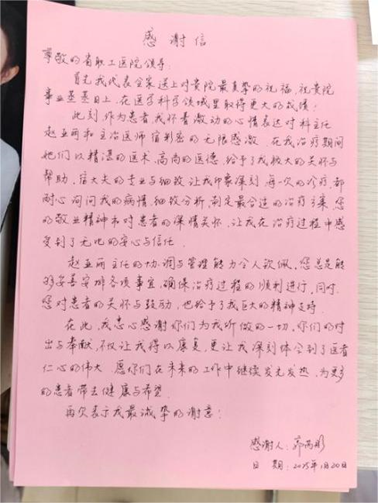 感谢信
尊敬的省职工医院领导：
首先我代表全家送上对贵院最真挚的祝福，祝贵院
事业蒸蒸日上，在医学科学领域里取得更大的成绩！
此刻，作为患者我怀着激动的心情表达对科主任
赵亚丽和主治医师宿彩密的无限感激，在我治疗期间
她们以精湛的医术，高尚的医德，给予了我极大的关怀与
帮助，宿大夫的专业与细致让我印象深刻，每一次的诊疗，都
耐心询问我的病情，细致分析，制定最合适的治疗方案。您
的敬业精神和对患者的深情关怀，让我在治疗过程中感
受到了无比的安心与信任。
赵亚丽主任的协调与管理能力令人钦佩，您总是能
够妥善安排各项事宜，确保治疗过程的顺利进行，同时，
您对患者的关怀与鼓励，也给予了我巨大的精神支持。
在此，我衷心感谢你们为我所做的一切，你们的付
出与奉献，不仅让我得以康复，更让我深刻体会到了医者
仁心的伟大，愿你们在未来的工作中继续发光发热，为更多
的患者带去健康与希望。
再次表示我最诚挚的谢意！
感谢人：
日期：2025年1月20日